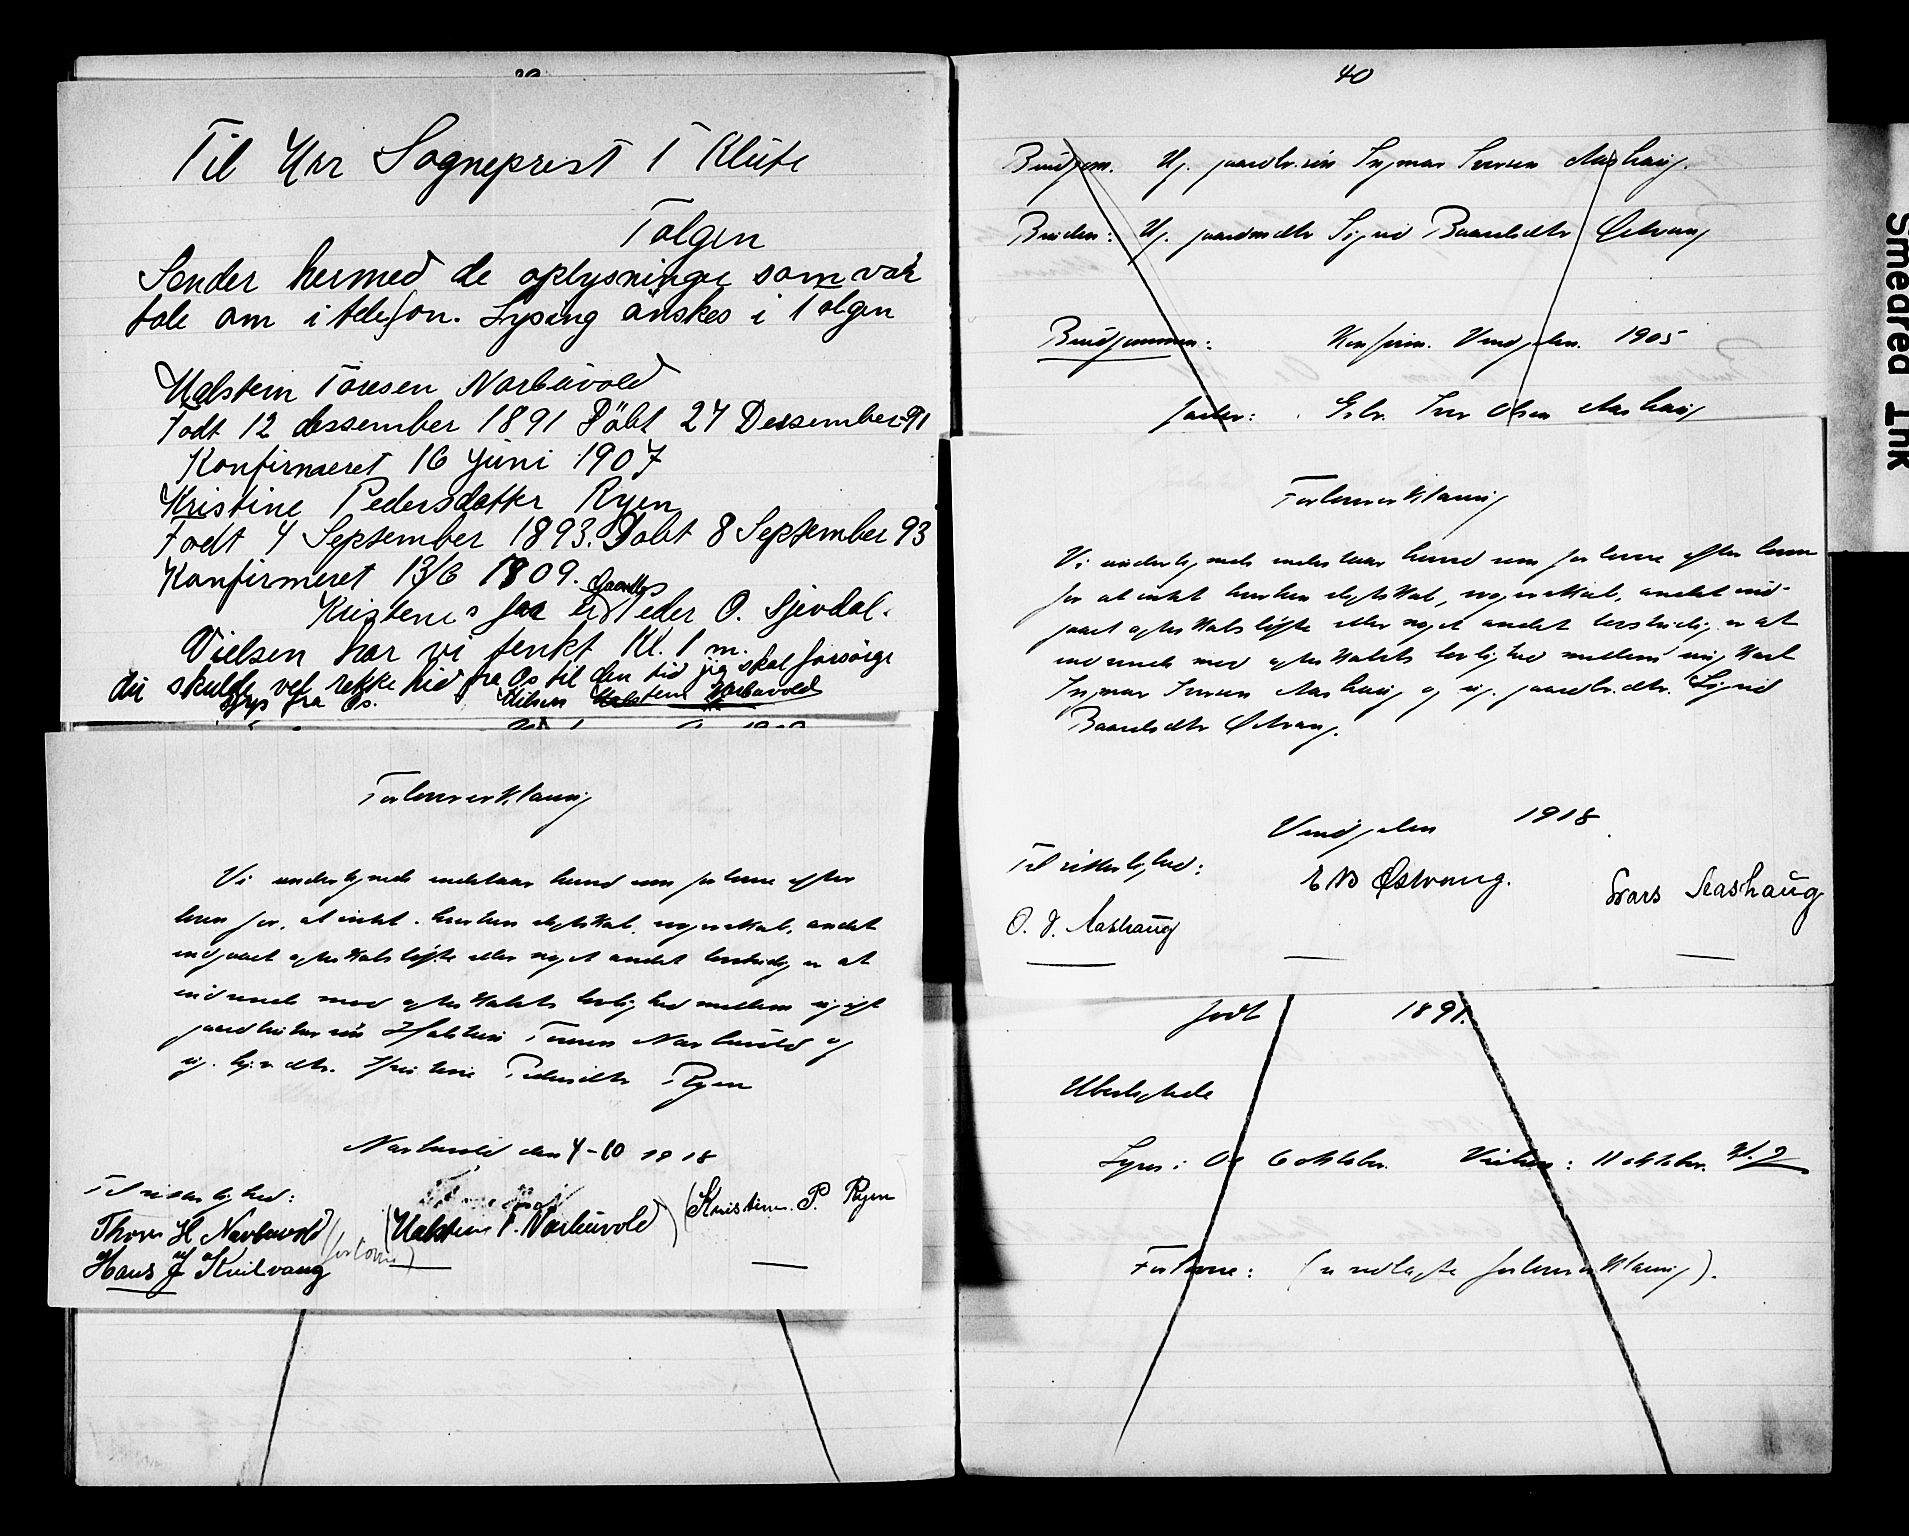 Til Herr Sogneprest I Klüte
Tolgen
Sender hermed de oplysninger som var
tale om i telefon. Lysing önskes i Tolgen
Halstein Toresen Narbuvold
Fodt 12 dessember 1891 Döbt 27 Dessember 91
Konfirmeret 16 Juni 1907
Kristine Pedersdatter Ryen
Fodt 4 September 1893. Döbt 8 September 93
Konfirmeret 13/6 1909.
Kristenes far er Peder O. Sjevdal.
Vielsen har vi tenkt Kl. 1 m.
du skulde vel rekke hid fra Os til den tid jeg skal forsörge
skys fra Os. Hilsen Halstein Narbuvold
Forlovererklæring
Vi undertegnede indestaar herved som forlovere efter
loven for, at intet hverken slegtskab, svogerskab, andet
indgaaet egteskabsløfte eller noget andet lovstridig er at
indvende mod egteskabets lovlighed mellem ugift
gaardbruker søn Halstein Toresen Narbuvold og
ug. Kristine Pedersdtr Ryen
Narbuvold den 4-10 1918
Til vitterlighed:
Thore H Narbuvold
Hans J Kvilvang
(forlovere)
(Halstein T. Narbuvold)
(Kristine P. Ryen
40
Brudgom. Ug. gaardbr. søn Ingmar Iversen Aashaug.
Bruden: Ug. gaardmdtr Sigrid Baardsdtr Østvang
Brudgommen: Konfirm. Vingelen. 1905
fader: Gbr. Iver Olsen Aashaug
Forlovererklæring
Vi undertegnede indestaar herved som forlovere efter loven
for at intet hverken slegtskab, svogerskab, andet ind-
gaaet egteskabsløfte eller noget andet lovstridig er at
indvende mod egteskabets lovlighed mellem ung Karl
Ingmar Iversen Aashaug og ug. gaardbr.dtr. Sigrid
Baardsdtr Østvang.
Vingelen 1918
Til vitterlighed:
E B Østvang.
Lars Aashaüg
O. J. Aashaüg
født 1891.
Ubeslegtede
Lyses i Os 6 oktober. Vielsen: 11 oktober. Kl. 2
Forlovere: (se vedlagte forlovererklæring).
Smeared Ink